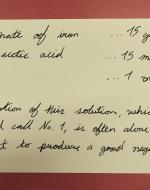 nate of iron ... 15 g
acetic acid ... 15 m
... 1
tion of this solution, whic
d call No. 1, is often alone
t to produce a good neg